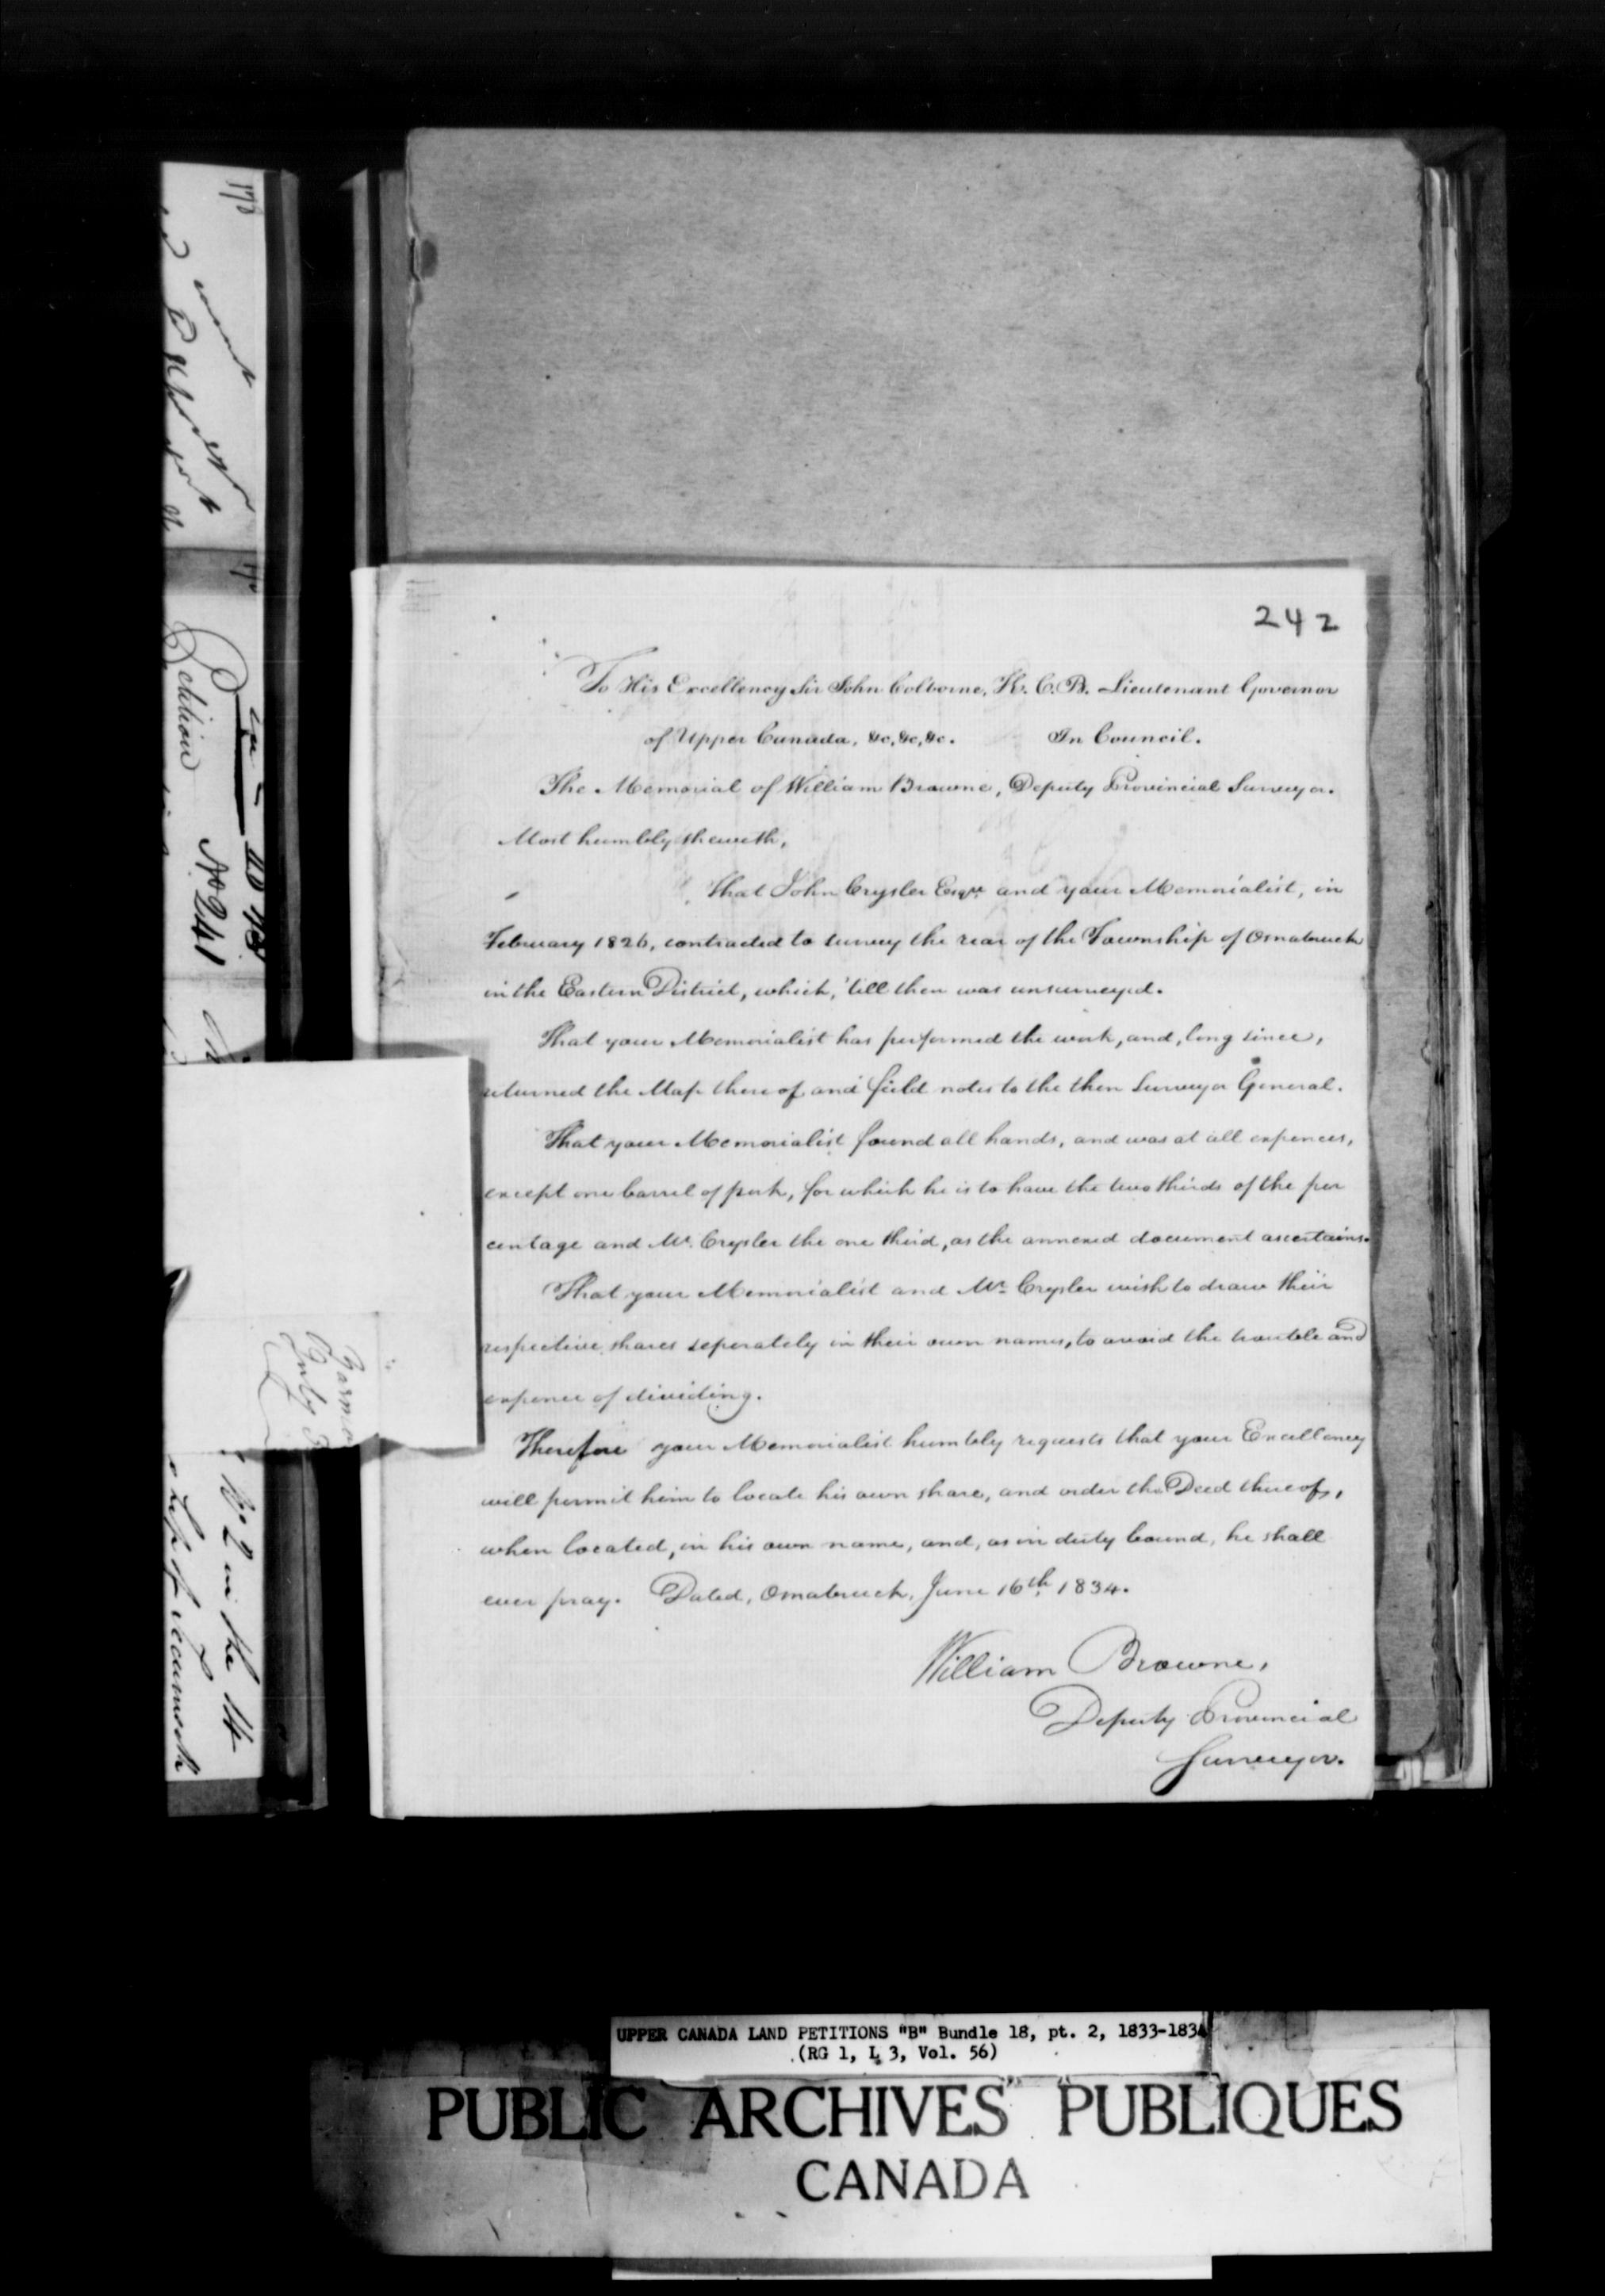 242
To His Excellency Sir John Colborne, K. C. B. Lieutenant Governor
of Upper Canada, &c, &c, &c. In Council.
The Memorial of William Browne, Deputy Provincial Surveyor.
Most humbly sheweth,
That John Crysler Esqre. and your Memorialist, in
February 1826, contracted to survey the rear of the Township of Osnabruck
in the Eastern District, which, 'till then was unsurveyed.
That your Memorialist has performed the work, and, long since,
returned the Map thereof and field notes to the then Surveyor General.
That your Memorialist found all hands, and was at all expences,
except one barrel of pork, for which he is to have the two thirds of the per
centage and Mr. Crysler the one third, as the annexed document ascertains.
That your Memorialist and Mr. Crysler wish to draw their
respective shares seperately in their own names, to avoid the trouble and
expence of dividing.
Therefore your Memorialist humbly requests that your Excellency
will permit him to locate his own share, and order the Deed thereof,
when located, in his own name, and, as in duty bound, he shall
ever pray. Dated, Osnabruck, June 16th. 1834.
William Browne,
Deputy Provincial
Surveyor.
Petition
No 241
UPPER CANADA LAND PETITIONS "B" Bundle 18, pt. 2, 1833-1834
(RG 1, L 3, Vol. 56)
PUBLIC ARCHIVES PUBLIQUES
CANADA